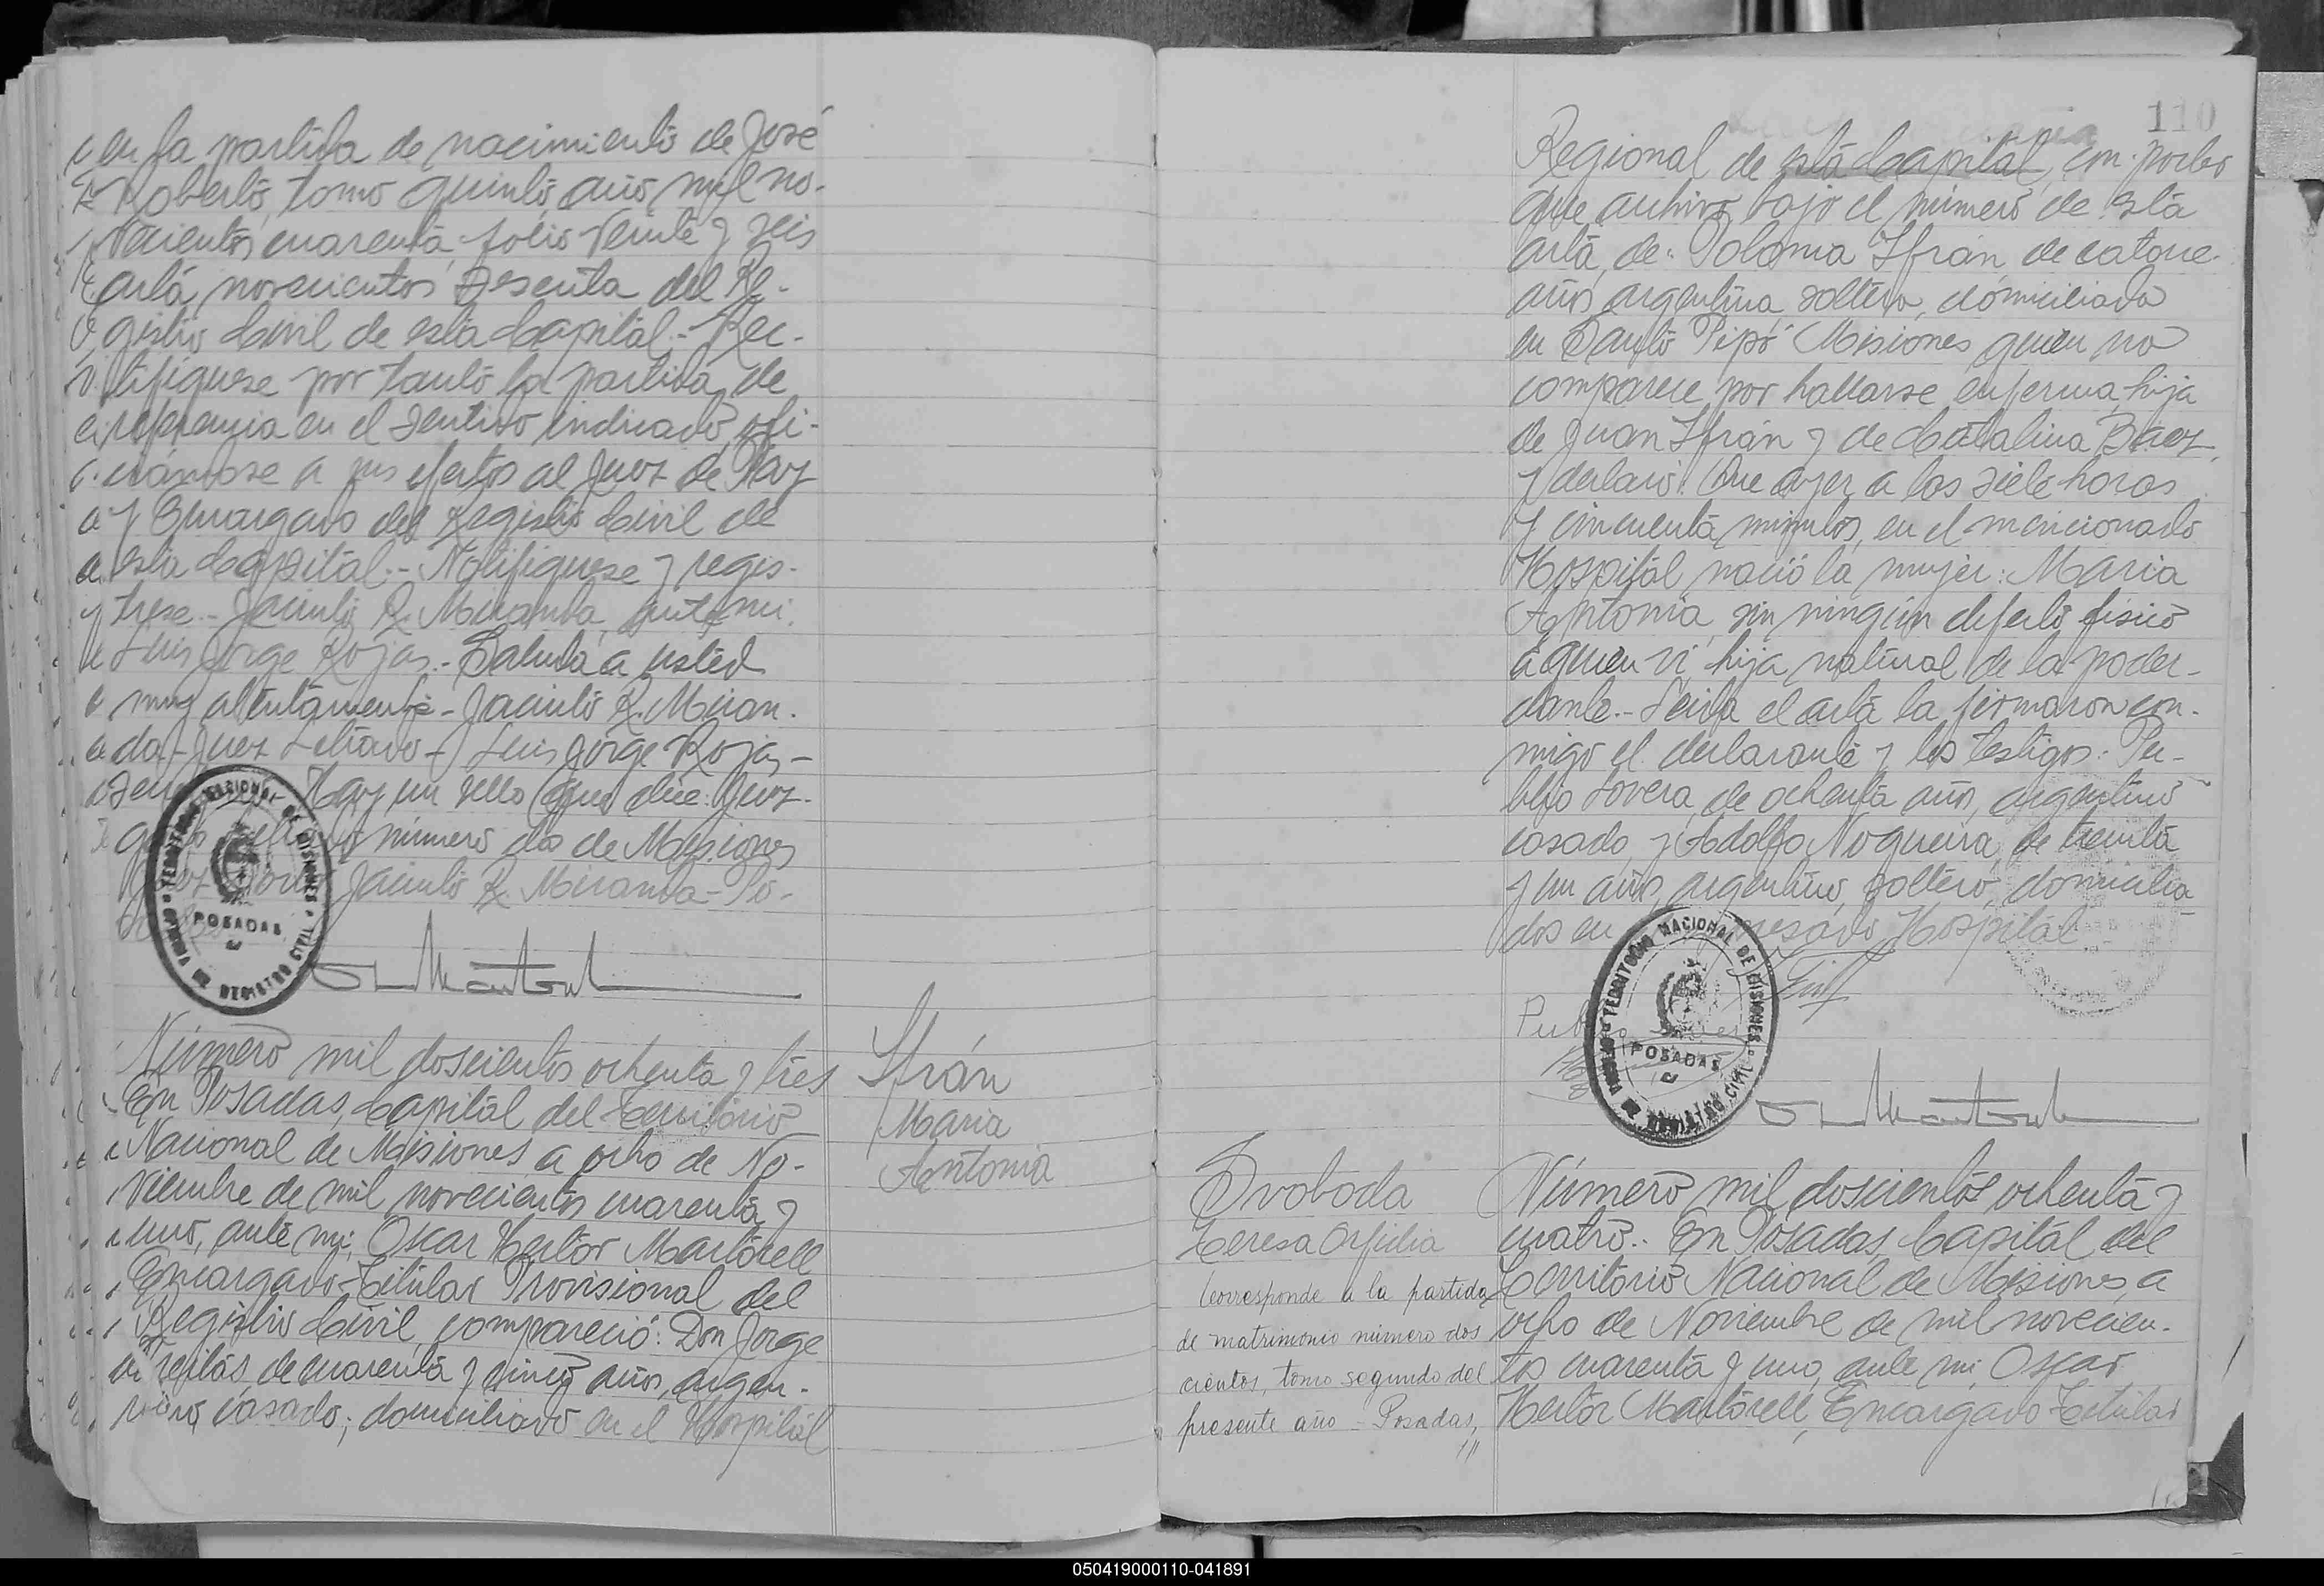 en la partida de nacimiento de José
Roberto, tomo quinto, año mil no-
vecientos cuarenta, folio veinte y seis
acta, novecientos sesenta del Re-
gistro Civil de esta Capital.- Rec-
tifíquese por tanto la partida de
referencia en el sentido indicado, ofi-
ciándose a sus efectos al Juez de Paz
y Encargado del Registro Civil de
esta Capital.- Notifíquese y regis-
trese.- Jacinto R. Miranda, ante mi:
Luis Jorge Rojas.- Saluda a usted
muy atentamente- Jacinto R. Miran-
da- Juez Letrado- Luis Jorge Rojas-
Hay un sello que dice: Juz-
gado Letrado número dos de Misiones
Jacinto R. Miranda- Po-
TERRITORIO NACIONAL DE MISIONES
POSADAS
REGISTRO CIVIL
Número mil doscientos ochenta y tres
En Posadas, Capital del Territorio
Nacional de Misiones a ocho de No-
viembre de mil novecientos cuarenta y
uno, ante mi, Oscar Hector Martorell
Encargado Titular Provisional del
Registro Civil, compareció: Don Jorge
de cuarenta y cinco años, argen-
tino, casado, domiciliado en el Hospital
Ifrán
Maria
Antonia
110
Regional de esta Capital, con poder
que archivo bajo el número de esta
acta, de: Paloma Ifrán, de catorce
años, argentina, soltera, domiciliada
en Santo Pipó Misiones, quien no
comparece por hallarse enferma, hija
de Juan Ifrán y de Catalina Baez,
y declaró: Que ayer a las siete horas
y cincuenta minutos, en el mencionado
Hospital nació la mujer: Maria
Antonia, sin ningún defecto fisico
a quien vi, hija natural de la poder-
dante.- Leida el acta la firmaron con-
migo el declarante y los testigos: Pu-
blio Lovera, de ochenta años, argentino
casado, y Adolfo Nogueira, de treinta
y un años, argentino, soltero, domicilia-
dos en Hospital
TERRITORIO NACIONAL DE MISIONES
POSADAS
REGISTRO CIVIL
Svoboda
Teresa Orfilia
Corresponde a la partida
de matrimonio número dos
cientos, tomo segundo del
presente año - Posadas,
Número mil doscientos ochenta y
cuatro.- En Posadas, Capital del
Territorio Nacional de Misiones, a
ocho de Noviembre de mil novecien-
tos cuarenta y uno, ante mi, Oscar
Hector Martorell, Encargado Titular
050419000110-041891